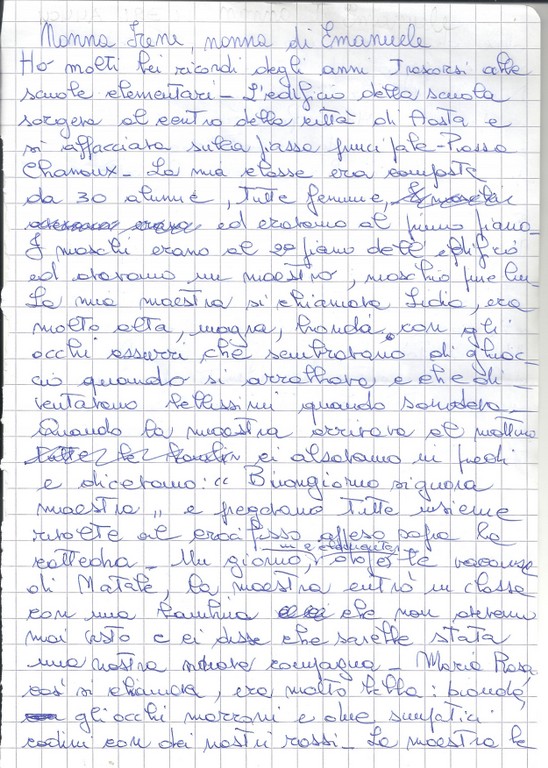 Nonna Irene, nonna di Emanuele
Ho molti bei ricordi degli anni trascorsi alle
scuole elementari - L'edificio della scuola
sorgeva al centro della città di Aosta e
si affacciava sulla piazza principale - Piazza
Chanoux - La mia classe era composta
da 30 alunne, tutte femmine,
ed eravamo al primo piano -
I maschi erano al 2º piano dell'edificio
ed avevano un maestro, maschio pure lui -
La mia maestra si chiamava Lidia, era
molto alta, magra, bionda con gli
occhi azzurri che sembravano di ghiac-
cio quando si arrabbiava e che di-
ventavano bellissimi quando sorrideva -
Quando la maestra arrivava al mattino
ci alzavamo in piedi
e dicevamo: « Buongiorno signora
maestra „ e pregavamo tutte insieme
rivolte al crocifisso appeso sopra la
cattedra - Un giorno, dopo le vacanze
di Natale, la maestra entrò in classe
con una bambina che non avevamo
mai visto e ci disse che sarebbe stata
una nostra nuova compagna - Maria Rosa,
così si chiamava, era molto bella: bionda,
gli occhi marroni e due simpatici
codini con dei nastri rossi - La maestra le